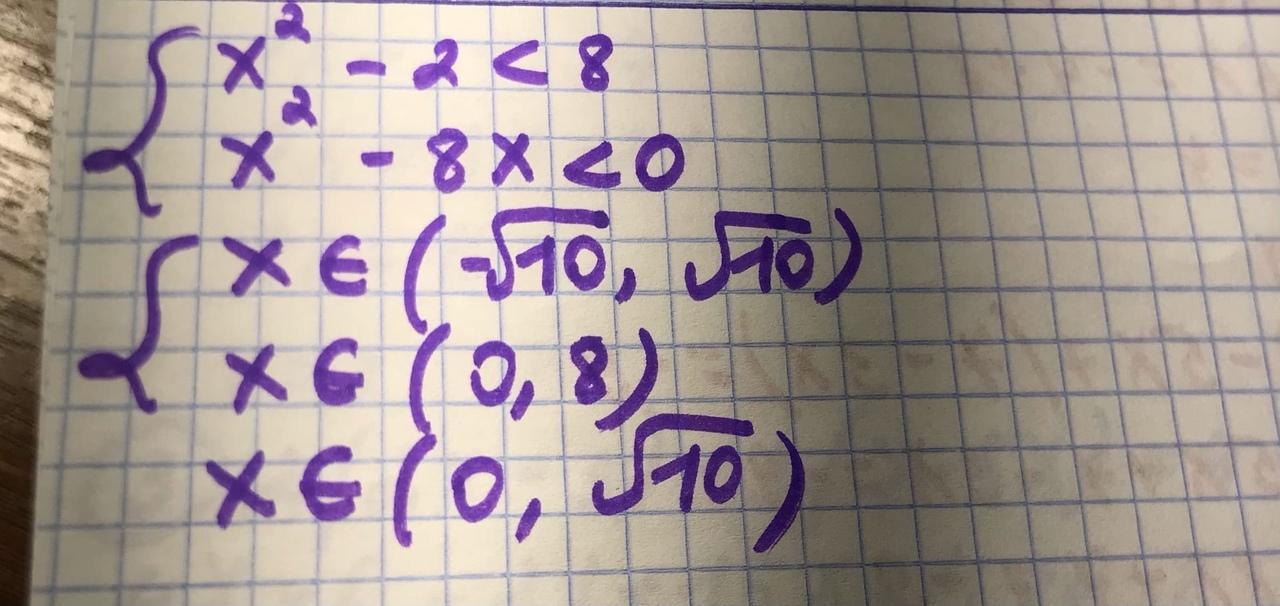 { x² - 2 < 8
x² - 8x < 0
{ x ∈ (-√10, √10)
x ∈ (0, 8)
x ∈ (0, √10)